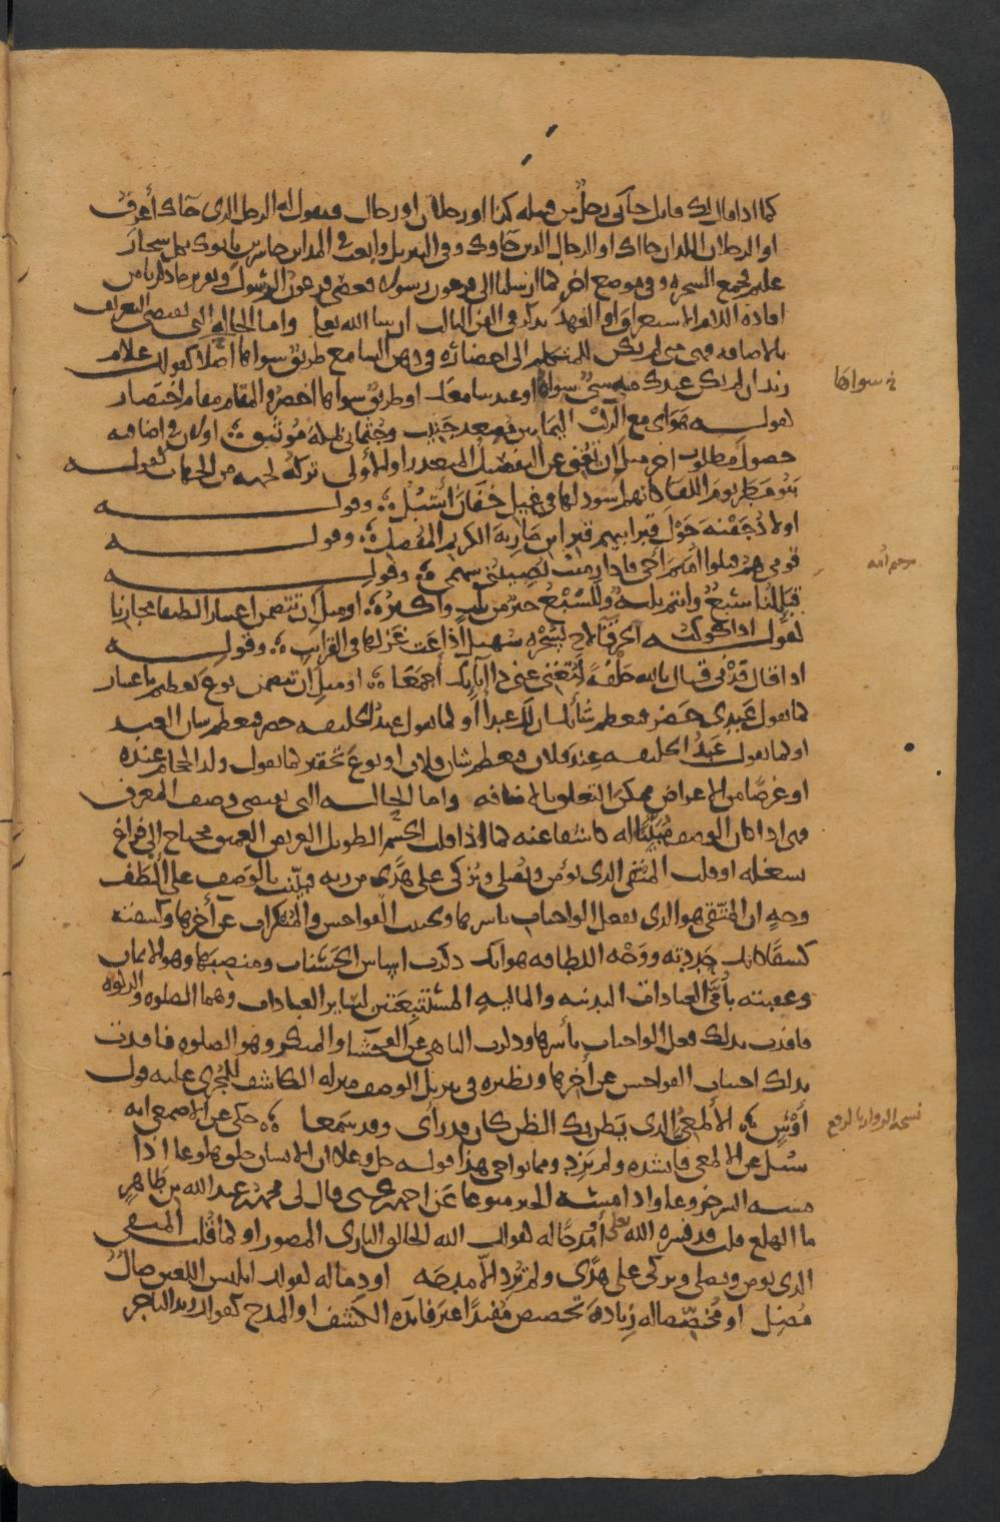 كما اذا قال لك قائل جاكى رجل من قبيله كذا او رجلان او رجال فتقول له الرجل الذى جاك أعرف
او الرجلان اللذان جااك او الرجال الذين جاوك وفى التنزيل وابعث فى المداين حاشرين ياتوك بكل سحار
عليم فجمع السحره وفى موضع اخر كما ارسلنا الى فرعون رسولا فعصى فرعون الرسول
افاده اللام الاستغراق او العهد ان شا الله تعالى واما الحاله التى تقتضى التعريف
بالاضافه فهى متى لم يكن للمتكلم الى احضاره فى ذهن السامع طريق سواها اصلا كقولك غلام
زيد ان لم يكن عندك منه شئ سواه او عند سامعك او طريق سواها اخصر والمقام مقام اختصار
كقوله هواى مع الركب اليمانين مصعد جنيب وجثمانى بمكة موثق او لان فى اضافته
حصول مطلوب اخر مثل ان تغنى عن التفصيل المتعذر او الاولى تركه لجهه من الجهات كقوله
بنو مطر يوم اللقا كانهم اسود لها فى غيل خفان أشبل وقوله
اولاد جفنة حول قبر ابيهم قبر ابن مارية الكريم المفضل وقوله
قومى هم قتلوا اميم اخى فاذا رميت يصيبنى سهمى وقوله
قبائلنا سبع وانتم ثلثة وللسبع خير من ثلث واكثر او مثل ان تتضمن اعتبارا لطيفا مجازيا
كقوله اذا كوكب الخرقاء لاح بسحرة سهيل اذاعت غزلها فى القرائب وقوله
اذا قال قدنى قال بالله حلفة لتغنى عنى ذا انائك أجمعا او مثل ان تتضمن نوع تعظيم باعتبار
كما تقول عبدى حضر فتعظم شأنك ان لك عبدا او كما تقول عبد الخليفه حضر فتعظم شان العبد
او كما تقول عبد الخليفه عند فلان فتعظم شان فلان او نوع تحقير كما تقول ولد الحجام عنده
او غرضا من الاغراض ممكن التعلق بالاضافه واما الحاله التى تقتضى وصف المعرف
فهى اذا كان الوصف مبينا له كاشفا عنه كما اذا قلت الجسم الطويل العريض العميق محتاج الى فراغ
يشغله او قلت المتقى الذى يؤمن ويصلى ويزكى على هدى من ربه فبينت بالوصف على ألطف
وجه ان المتقى هو الذى يفعل الواجبات باسرها ويجتنب الفواحش والمنكرات عن أخرها وكشفته
كشفا كانك حددته ووجه اللطافه هو انك ذكرت اساس الحسنات ومنصبها وهو الايمان
وعقبته بأمى العبادات البدنيه والماليه المستتبعتين لساير العبادات وهما الصلوه والزكوه
فافدت بذلك فعل الواجبات بأسرها وذكرت الناهى عن الفحشا والمنكر وهو الصلوه فافدت
بذلك اجتناب الفواحش عن أخرها ونظيره فى تنزيل الوصف منزله الكاشف للمجرى عليه قول
أوس الألمعى الذى يظن بك الظن كان قد رأى وقد سمعا حكى عن الاصمعى انه
سئل عن الالمعى فانشده ولم يزد ومما يواخى هذا قوله جل وعلا ان الانسان خلق هلوعا اذا
مسه الشر جزوعا واذا مسه الخير منوعا عن احمد بن يحيى قال لى محمد بن عبد الله بن طاهر
ما الهلع قلت قد فسره الله تعالى او مدحا له كقولك الله الخالق البارى المصور او كما قلت المتقى
الذى يومن ويصلى ويزكى على هدى ولم ترد الا مدحه او ذما له كقولك ابليس اللعين ضال
مضل او مخصصا له زيادة تخصيص مفيدا غير فايده الكشف او المدح كقولك زيد التاجر
خ سواها